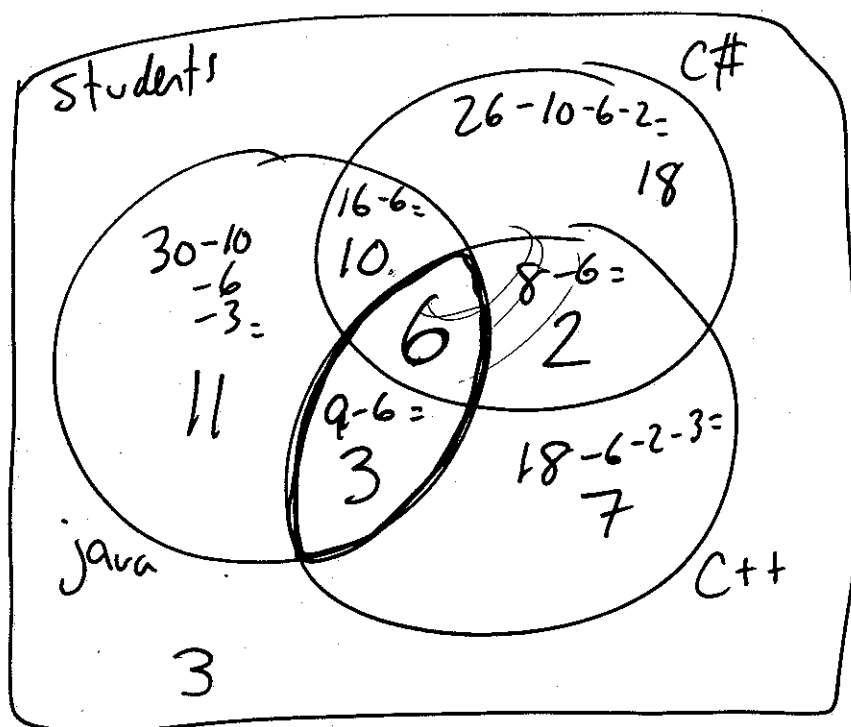 Students
C#
26-10-6-2=
18
16-6=
10
30-10
-6
-3=
11
8-6=
2
6
9-6=
3
18-6-2-3=
7
java
C++
3